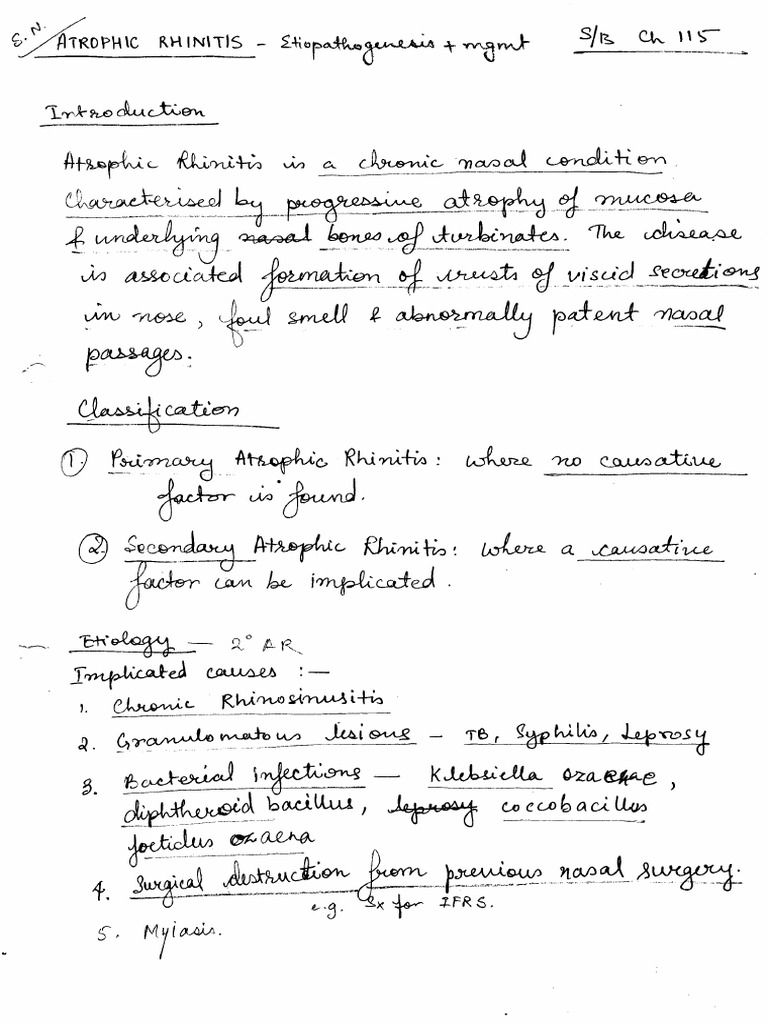 S.N. / ATROPHIC RHINITIS - Etiopathogenesis + mgmt S/B Ch 115
Introduction
Atrophic Rhinitis is a chronic nasal condition
characterised by progressive atrophy of mucosa
& underlying nasal bones of turbinates. The disease
is associated formation of crusts of viscid secretions
in nose, foul smell & abnormally patent nasal
passages.
Classification
1. Primary Atrophic Rhinitis: where no causative
factor is found.
2. Secondary Atrophic Rhinitis: where a causative
factor can be implicated.
Etiology — 2° AR
Implicated causes :—
1. Chronic Rhinosinusitis
2. Granulomatous lesions - TB, Syphilis, Leprosy
3. Bacterial infections — Klebsiella ozaenae,
diphtheroid bacillus, leprosy coccobacillus
foetidus ozaena
4. Surgical destruction from previous nasal surgery.
e.g. Sx for IFRS.
5. Myiasis.